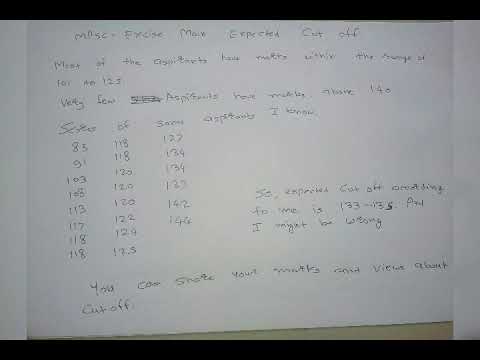 MPSC - Excise Main Expected Cut off
Most of the aspitants have matks within the range of
101 to 125
Very few Aspitants have matks above 140
Scores of some aspitants I know.
85 118 127
91 118 134
103 120 134
105 120 137
113 120 142
117 122 146
118 124
118 125
So, expected cut off according
to me is 133-135. But
I might be wrong
You can shate your matks and views about
cut off.